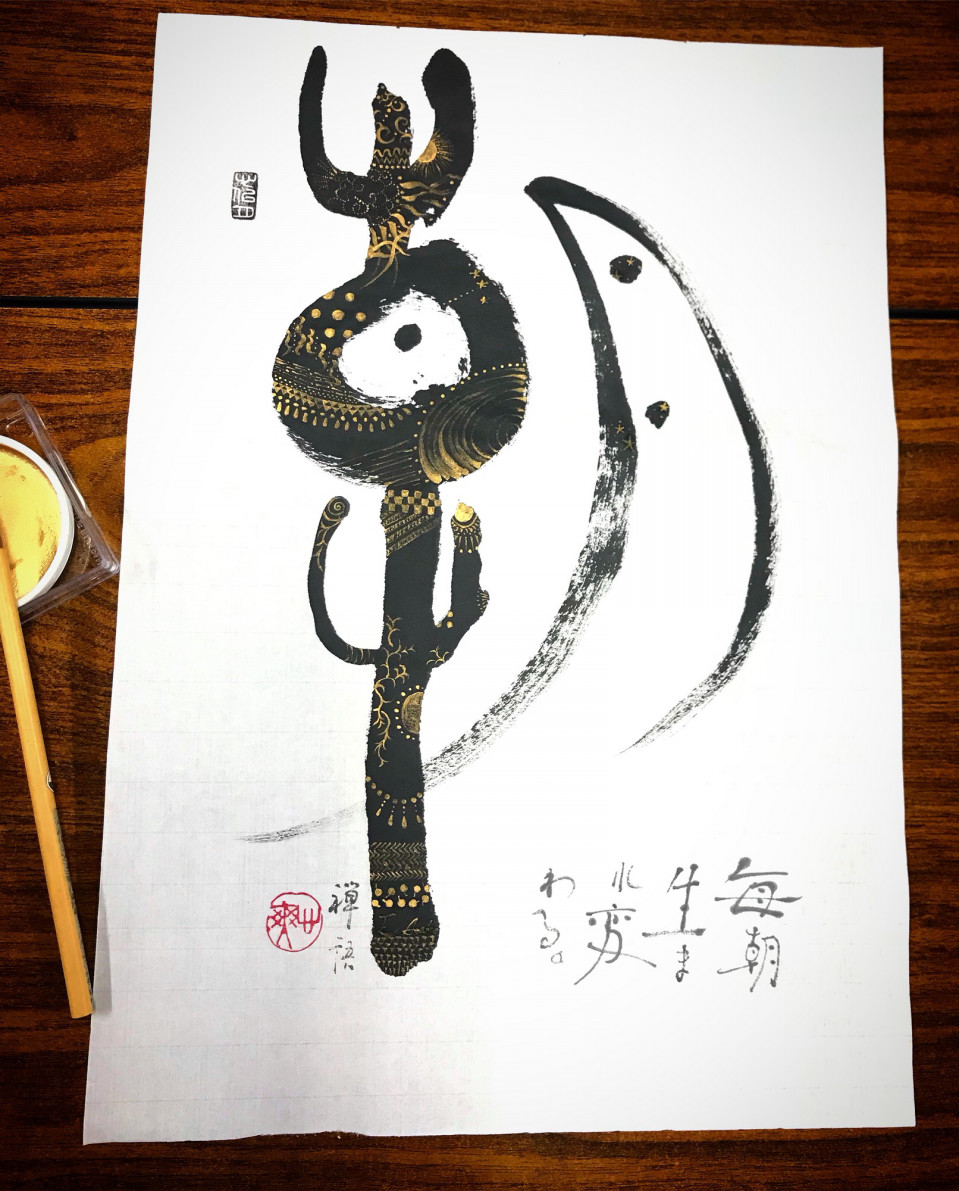 朝
毎朝
生ま
れ変
わる。
禅語